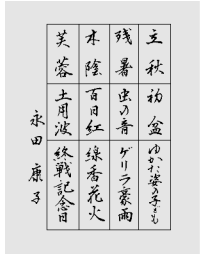 立秋
初盆
ゆかた姿の子ども
残暑
虫の音
ゲリラ豪雨
木陰
百日紅
線香花火
芙蓉
土用波
終戦記念日
永田康子